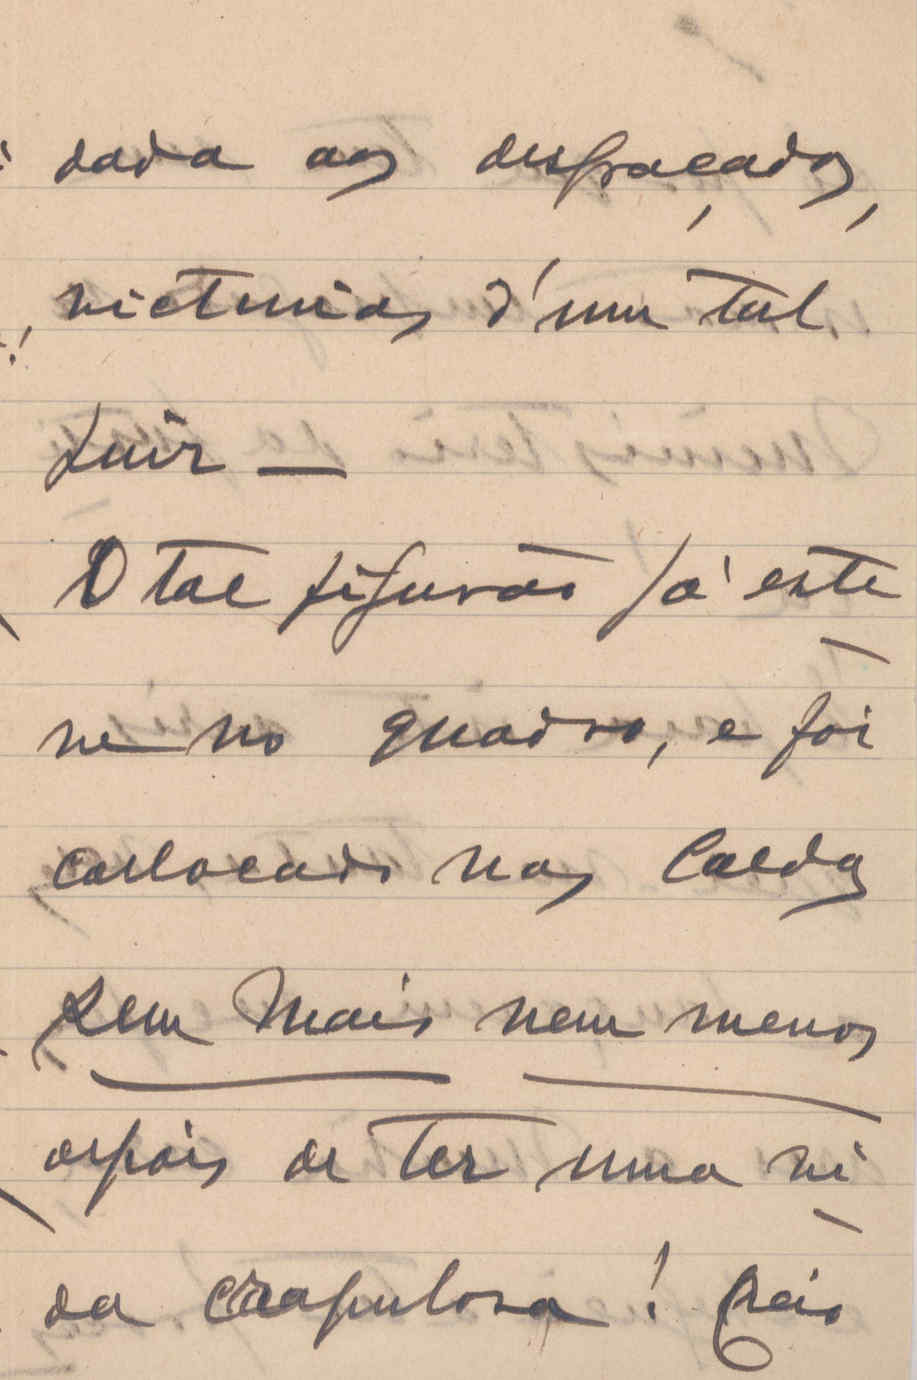 dada aos desgraçados,
victimas d'um tal
Juiz —
O tal figurão já este
ve no quadro, e foi
collocado nas Caldas
sem mais nem menos
depois de ter uma vi
da crapulosa! Creio